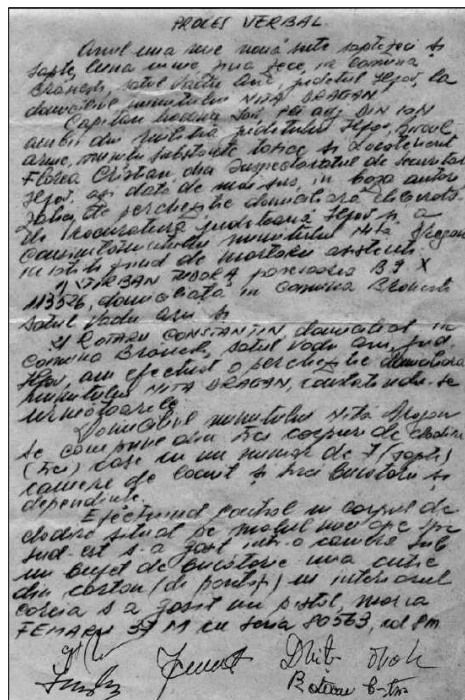 PROCES VERBAL
Anul una mie nouă sute șaptezeci și
șapte, luna iunie, ziua zece, în comuna
Brănești, satul Vadu Anii, județul Ilfov, la
domiciliul numitului NIȚĂ DRAGAN
Căpitan Ion, plt. adj. DIN ION
ambii din Miliția județului Ilfov, biroul
arme, muniții substanțe toxice și Locotenent
Florea Cristian, din Inspectoratul de Securitate
Ilfov, azi data de mai sus, în baza autori
zației de percheziție domiciliară eliberată
de Procuratura județeană Ilfov și a
consimțămîntului numitului Niță Dragan
fiind de martorii asistenți
1) ȘERBAN TUDORA posesoarea B.I. X
113526, domiciliată în comuna Brănești
satul Vadu Anii și
2) ROTARU CONSTANTIN domiciliat în
comuna Brănești, satul Vadu Anii, jud.
Ilfov, am efectuat o percheziție domiciliară
numitului NIȚĂ DRAGAN, constatîndu-se
următoarele:
Domiciliul numitului Niță Dragan
se compune din trei corpuri de clădire
(trei) case cu un număr de 7 (șapte)
camere de locuit și trei bucătării și
dependințe.
Efectuînd control în corpul de
clădire situat pe
sud-est s-a găsit într-o cameră sub
un bufet de bucătărie una cutie
din carton (de pantofi) în interiorul
căreia s-a găsit un pistol, marca
FEMARU 37 M cu seria 80563, cal 9m